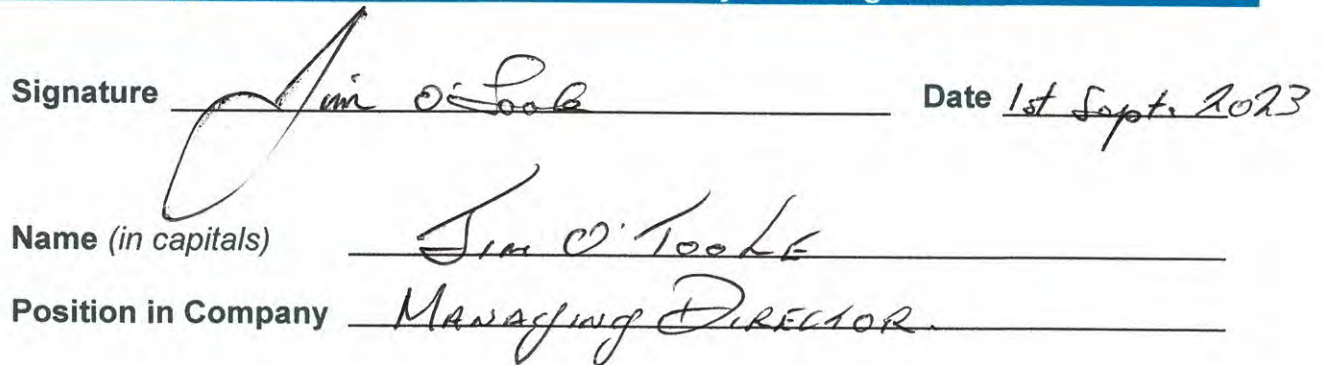 Signature Jim O'Toole Date 1st Sept. 2023
Name (in capitals) JIM O'TOOLE
Position in Company MANAGING DIRECTOR.